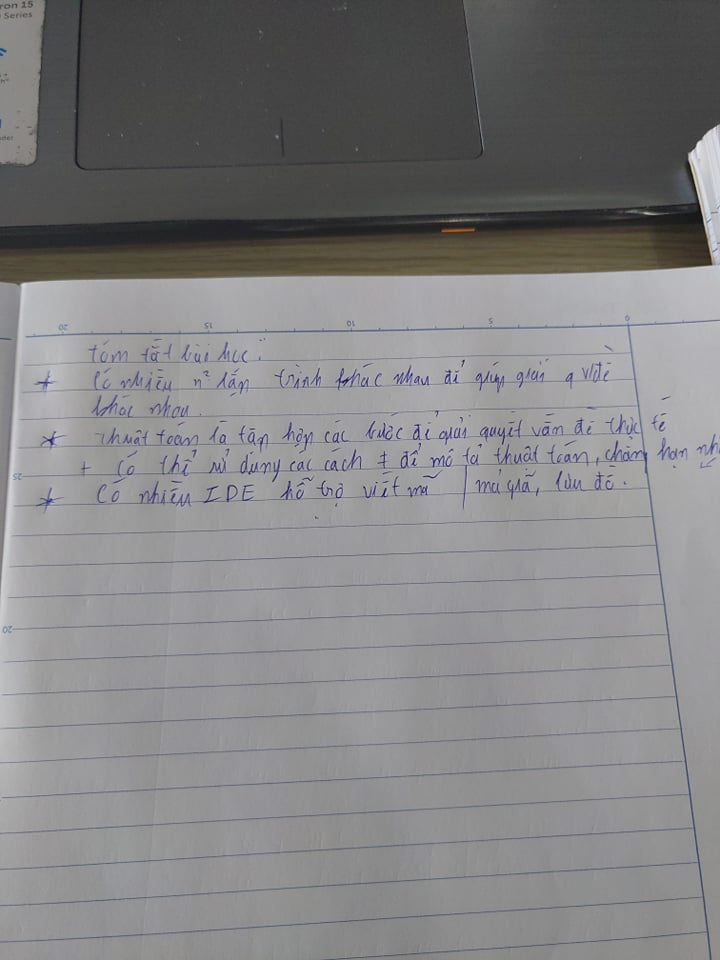 ron 15
Series
20 15 10 5 0
tóm tắt bài học:
* Có nhiều n² lập trình khác nhau để giúp giải q vđề
khác nhau.
* thuật toán là tập hợp các bước để giải quyết vấn đề thực tế
+ Có thể sử dụng các cách ≠ để mô tả thuật toán, chẳng hạn nh
25
* Có nhiều IDE hỗ trợ viết mã | mã giả, lưu đồ.
20